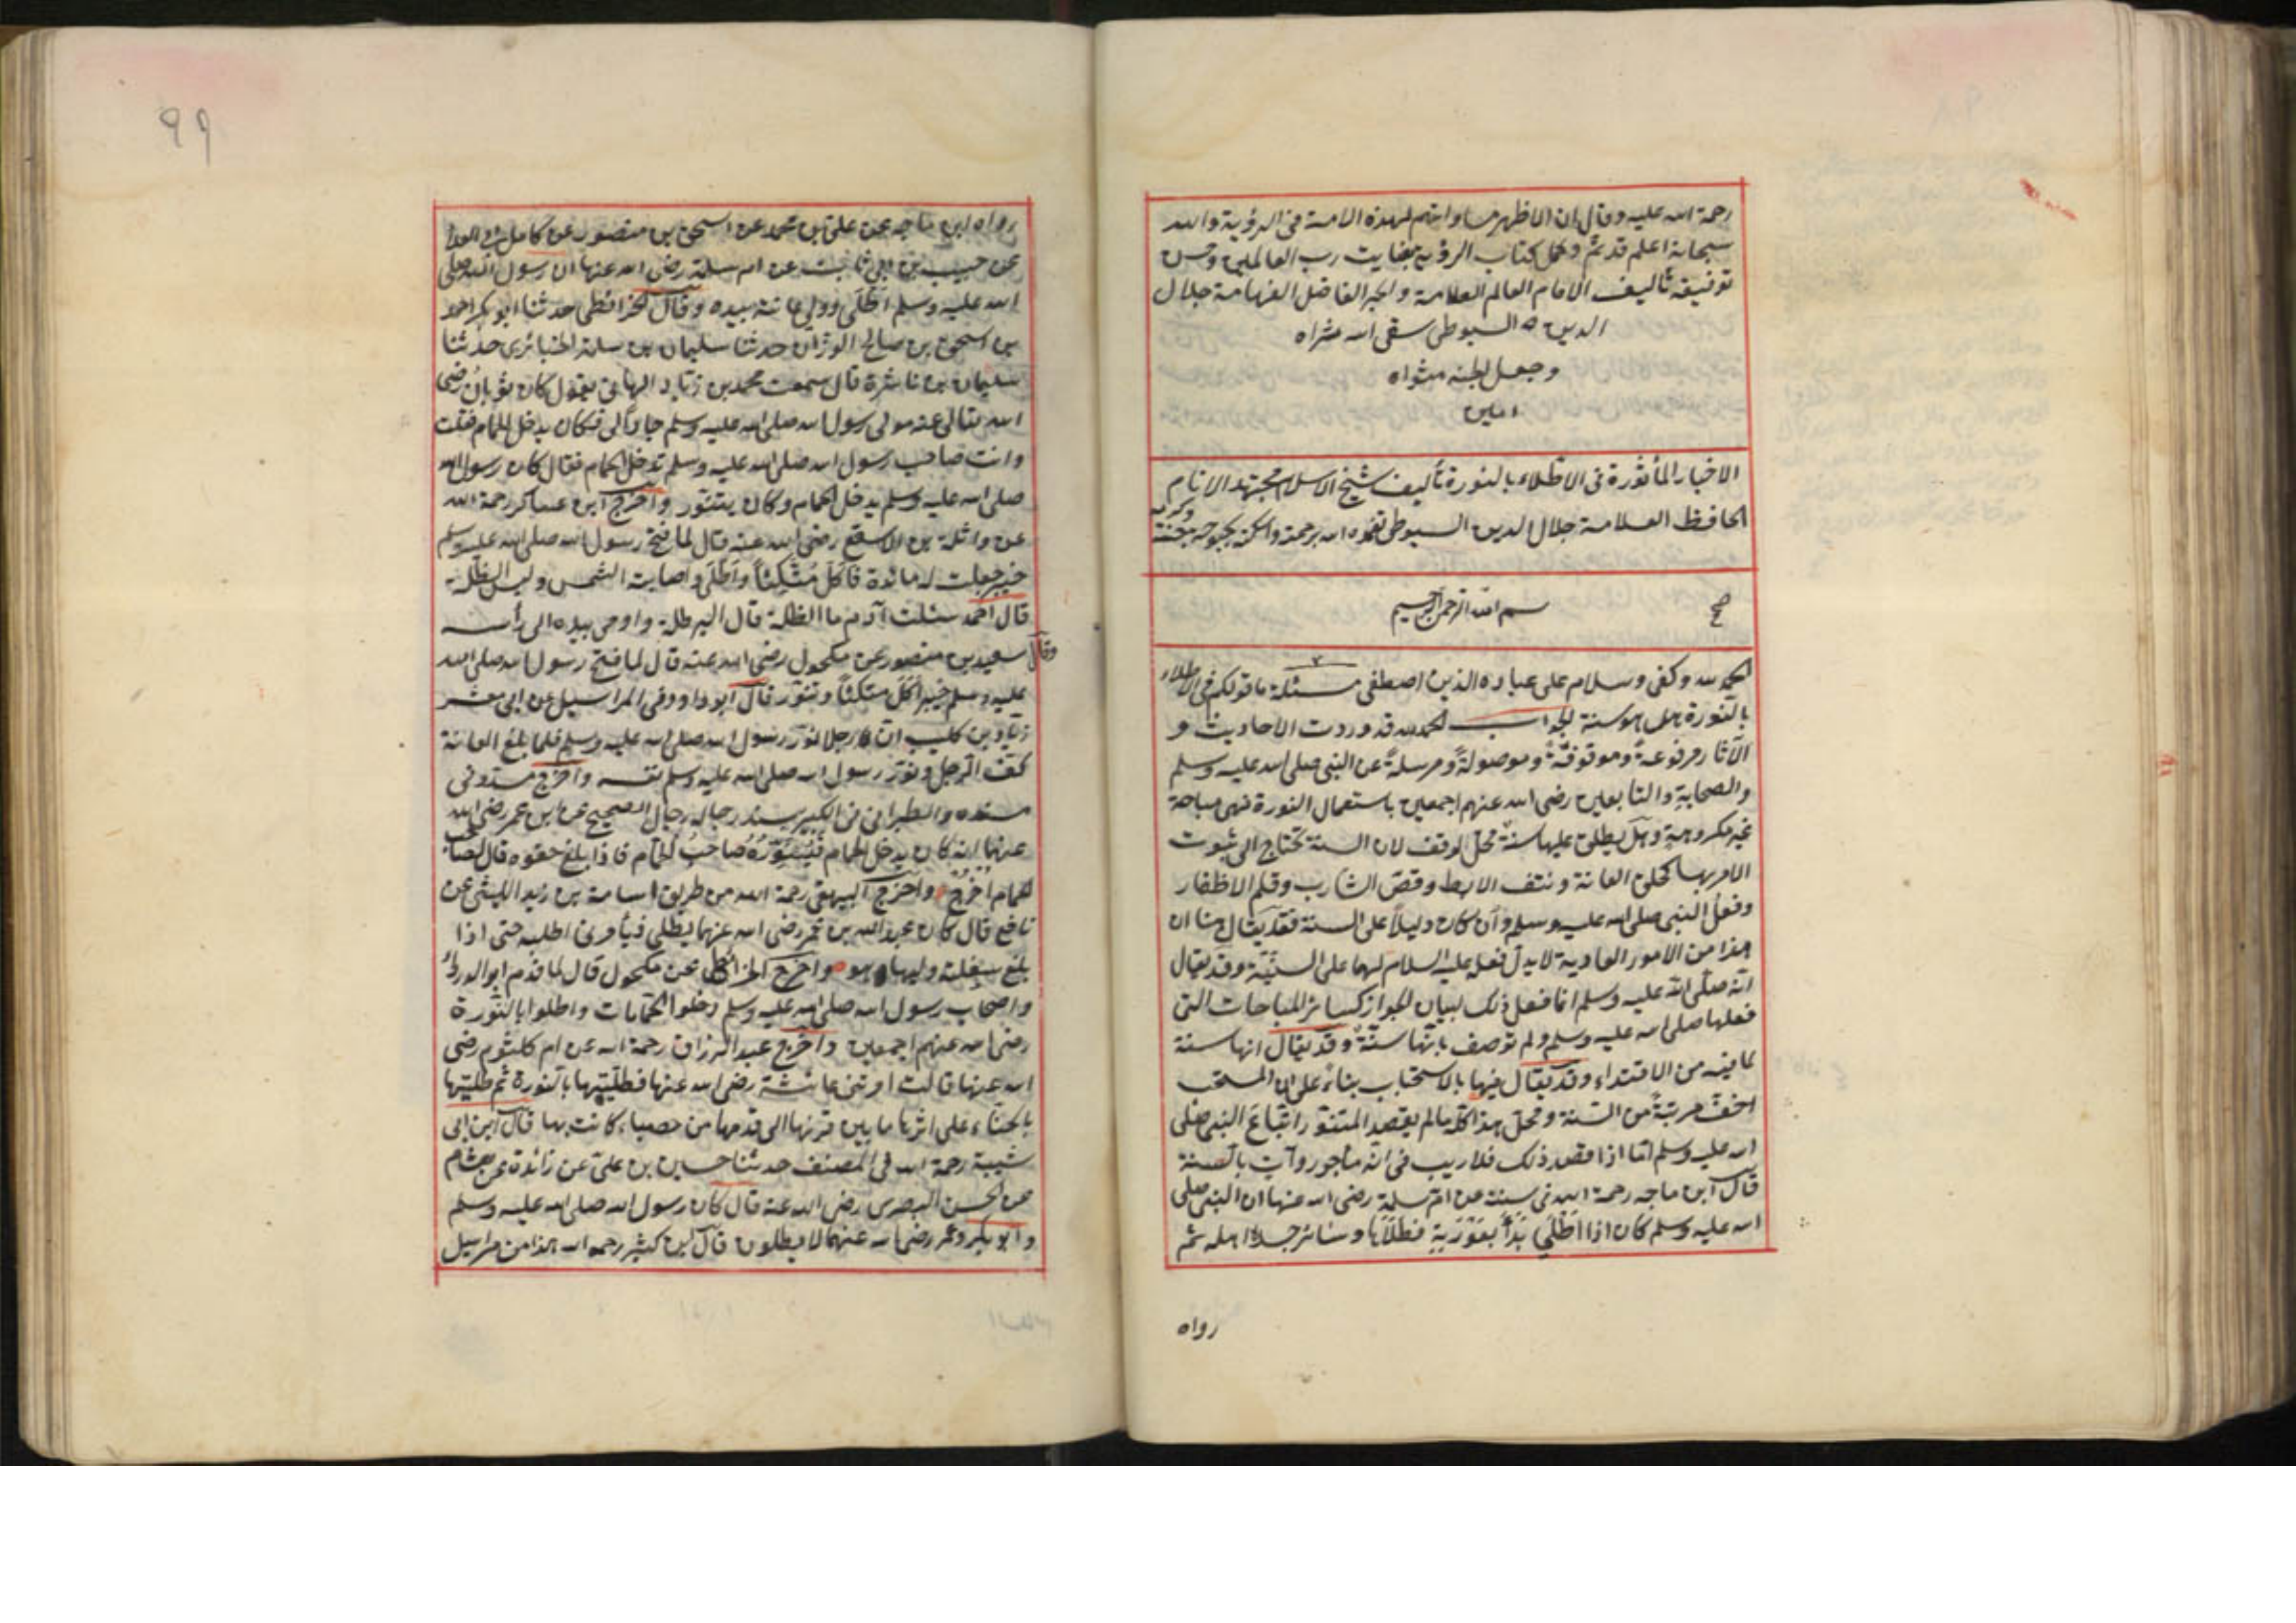 رحمة الله عليه وقال ان الاظهر مساواتهم لهذه الامة فى الرؤية والله
سبحانه اعلم قد تم وكمل كتاب الرؤية بعنايت رب العالمين وحسن
توفيقه تأليف الامام العالم العلامة والحبر الفاضل الفهامة جلال
الدين السيوطى سقى الله ثراه
وجعل الجنة مثواه
امين
الاخبار المأثورة فى الاطلاء بالنورة تأليف شيخ الاسلام مجتهد الانام
الحافظ العلامة جلال الدين السيوطى تغمده الله برحمته واسكنه بحبوحة جنته
وكرمه
بسم الله الرحمن الرحيم
صح
الحمد لله وكفى وسلام على عباده الذين اصطفى مسئلة ما قولكم فى الاطلاء
بالنورة هل هو سنة الجواب الحمد لله قد وردت الاحاديث و
الآثار مرفوعةً وموقوفةً وموصولةً ومرسلةً عن النبى صلى الله عليه وسلم
والصحابة والتابعين رضى الله عنهم اجمعين باستعمال النورة فهى مباحة
غير مكروهةٍ وهل يطلق عليها سنةٌ محلّ توقف لان السنة تحتاج الى ثبوت
الامر بها كحلق العانة ونتف الابط وقصّ الشارب وقلم الاظفار
وفعلُ النبى صلى الله عليه وسلم وان كان دليلاً على السنة فقد يقال هنا ان
هذا من الامور العادية لا يدلّ فعله عليه السلام لهما على السنّيّة وقد يقال
انّه صلّى الله عليه وسلم انما فعل ذلك لبيان الجواز كسائر المباحات التى
فعلها صلى الله عليه وسلم ولم توصف بانّها سنّةٌ وقد يقال انها سنة
لما فيه من الاقتداء وقد يقال فيها بالاستحباب بناءً على انّ المستحب
اخفّ مرتبةً من السّنة ومحلّ هذا كلّه ما لم يقصد المتنوّر اتّباعَ النبى صلى
الله عليه وسلم امّا اذا قصد ذلك فلا ريب فى انه مأجور وآتٍ بالسنة
قال ابن ماجه رحمة الله فى سننه عن امّ سلمة رضى الله عنها ان النبى صلى
الله عليه وسلم كان اذا اطّلى بَدَأَ بعَوْرَتِهِ فطلَاَها وسائر جسده اهله ثم
رواه
٩٩
رواه ابن ماجه عن على بن محمد عن اسحق بن منصور عن كامل ابى العلا
عن حبيب بن ابى ثابت عن ام سلمة رضى الله عنها ان رسول الله صلى
الله عليه وسلم اطّلى وولى عانته بيده وقال الخرائطى حدثنا ابو بكر احمد
بن اسحق بن صالح الوزّان حدثنا سليمان بن سلمة الخبائرى حدثنا
سليمان بن ناشرة قال سمعت محمد بن زياد الهانى يقول كان ثوبان رضى
الله تعالى عنه مولى رسول الله صلى الله عليه وسلم جاراً لى فكان يدخل الحمام فقلت
وانت صاحب رسول الله صلى الله عليه وسلم تدخل الحمام فقال كان رسول الله
صلى الله عليه وسلم يدخل الحمام وكان يتنوّر واخرج ابن عساكر رحمة الله
عن واثلة بن الاسقع رضى الله عنه قال لما فتح رسول الله صلى الله عليه وسلم
خيبر جعلت له مائدة فأكل متّكئاً واطّلى واصابته الشمس ولبس الظلة
قال احمد سئلت آدم ما الظلة قال البرطلة واومى بيده الى رأسه
وقال سعيد بن منصور عن مكحول رضى الله عنه قال لما فتح رسول الله صلى الله
عليه وسلم خيبر اكل متكئاً وتنوّر قال ابو داوود فى المراسيل عن ابى معشر
زياد بن كليب انّ رجلا نوّر رسول الله صلى الله عليه وسلم فلما بلغ العانة
كفّ الرجل ونوّر رسول الله صلى الله عليه وسلم نفسه واخرج مسدّد فى
مسنده والطبرانى فى الكبير بسند رجاله رجال الصحيح عن ابن عمر رضى الله
عنهما انه كان يدخل الحمام فيُنَوّرُهُ صاحبُ الحمّام فاذا بلغ حقوه قال لصاحب
الحمام اُخرُجْ واخرج البيهقى رحمة الله من طريق اسامة بن زيد الليثى عن
نافع قال كان عبد الله بن عمر رضى الله عنهما يطلى فيأمرنى اطليه حتى اذا
بلغ سفلته وليها هو واخرج الخرائطى عن مكحول قال لما قدم ابو الدرداء
واصحاب رسول الله صلى الله عليه وسلم دخلوا الحمّامات واطلوا بالنّورة
رضى الله عنهم اجمعين واخرج عبد الرزاق رحمة الله عن ام كلثوم رضى
الله عنها قالت امرتنى عائشة رضى الله عنها فطليتها بالنورة ثم طليتها
بالحنّاء على اثرها ما بين قرنها الى قدمها من حصباء كانت بها قال ابن ابى
شيبة رحمة الله فى المصنف حدثنا حسين بن علىّ عن زائدة عن هشام
عن الحسن البصرى رضى الله عنه قال كان رسول الله صلى الله عليه وسلم
وابو بكر وعمر رضى الله عنهما لا يطلون قال ابن كثير رحمه الله هذا من مراسيل